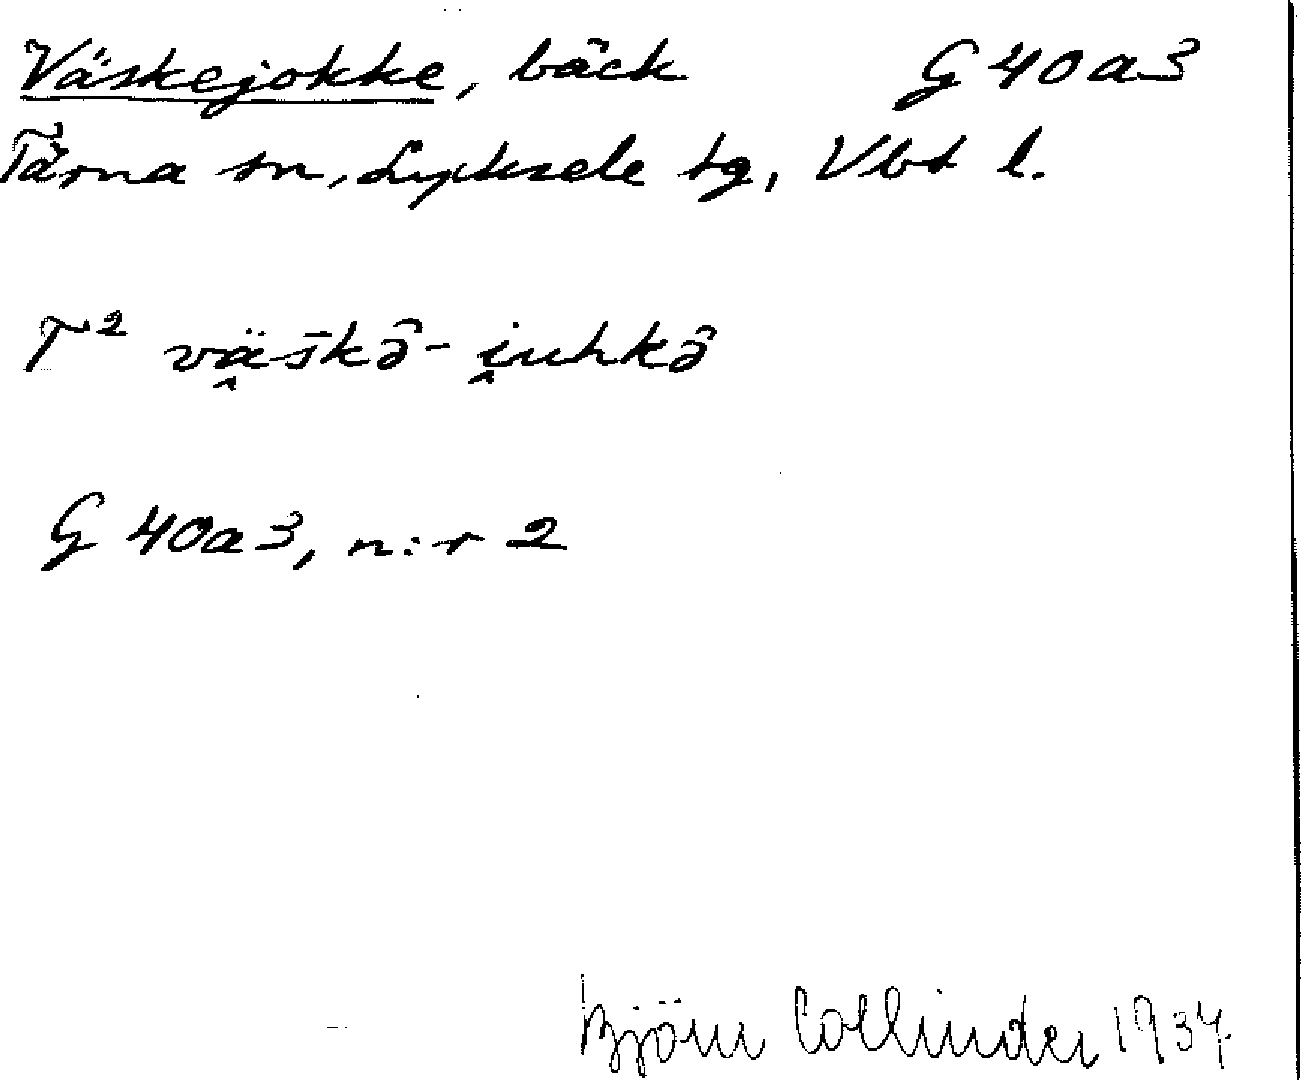 Väskejokke, bäck G 40 a 3
Tärna sn, Lycksele tg, Vbt l.
T² vä̭s̄kə̂ - i̭uhkə̂
G 40a3, n:r 2
Björn Collinder 1937.